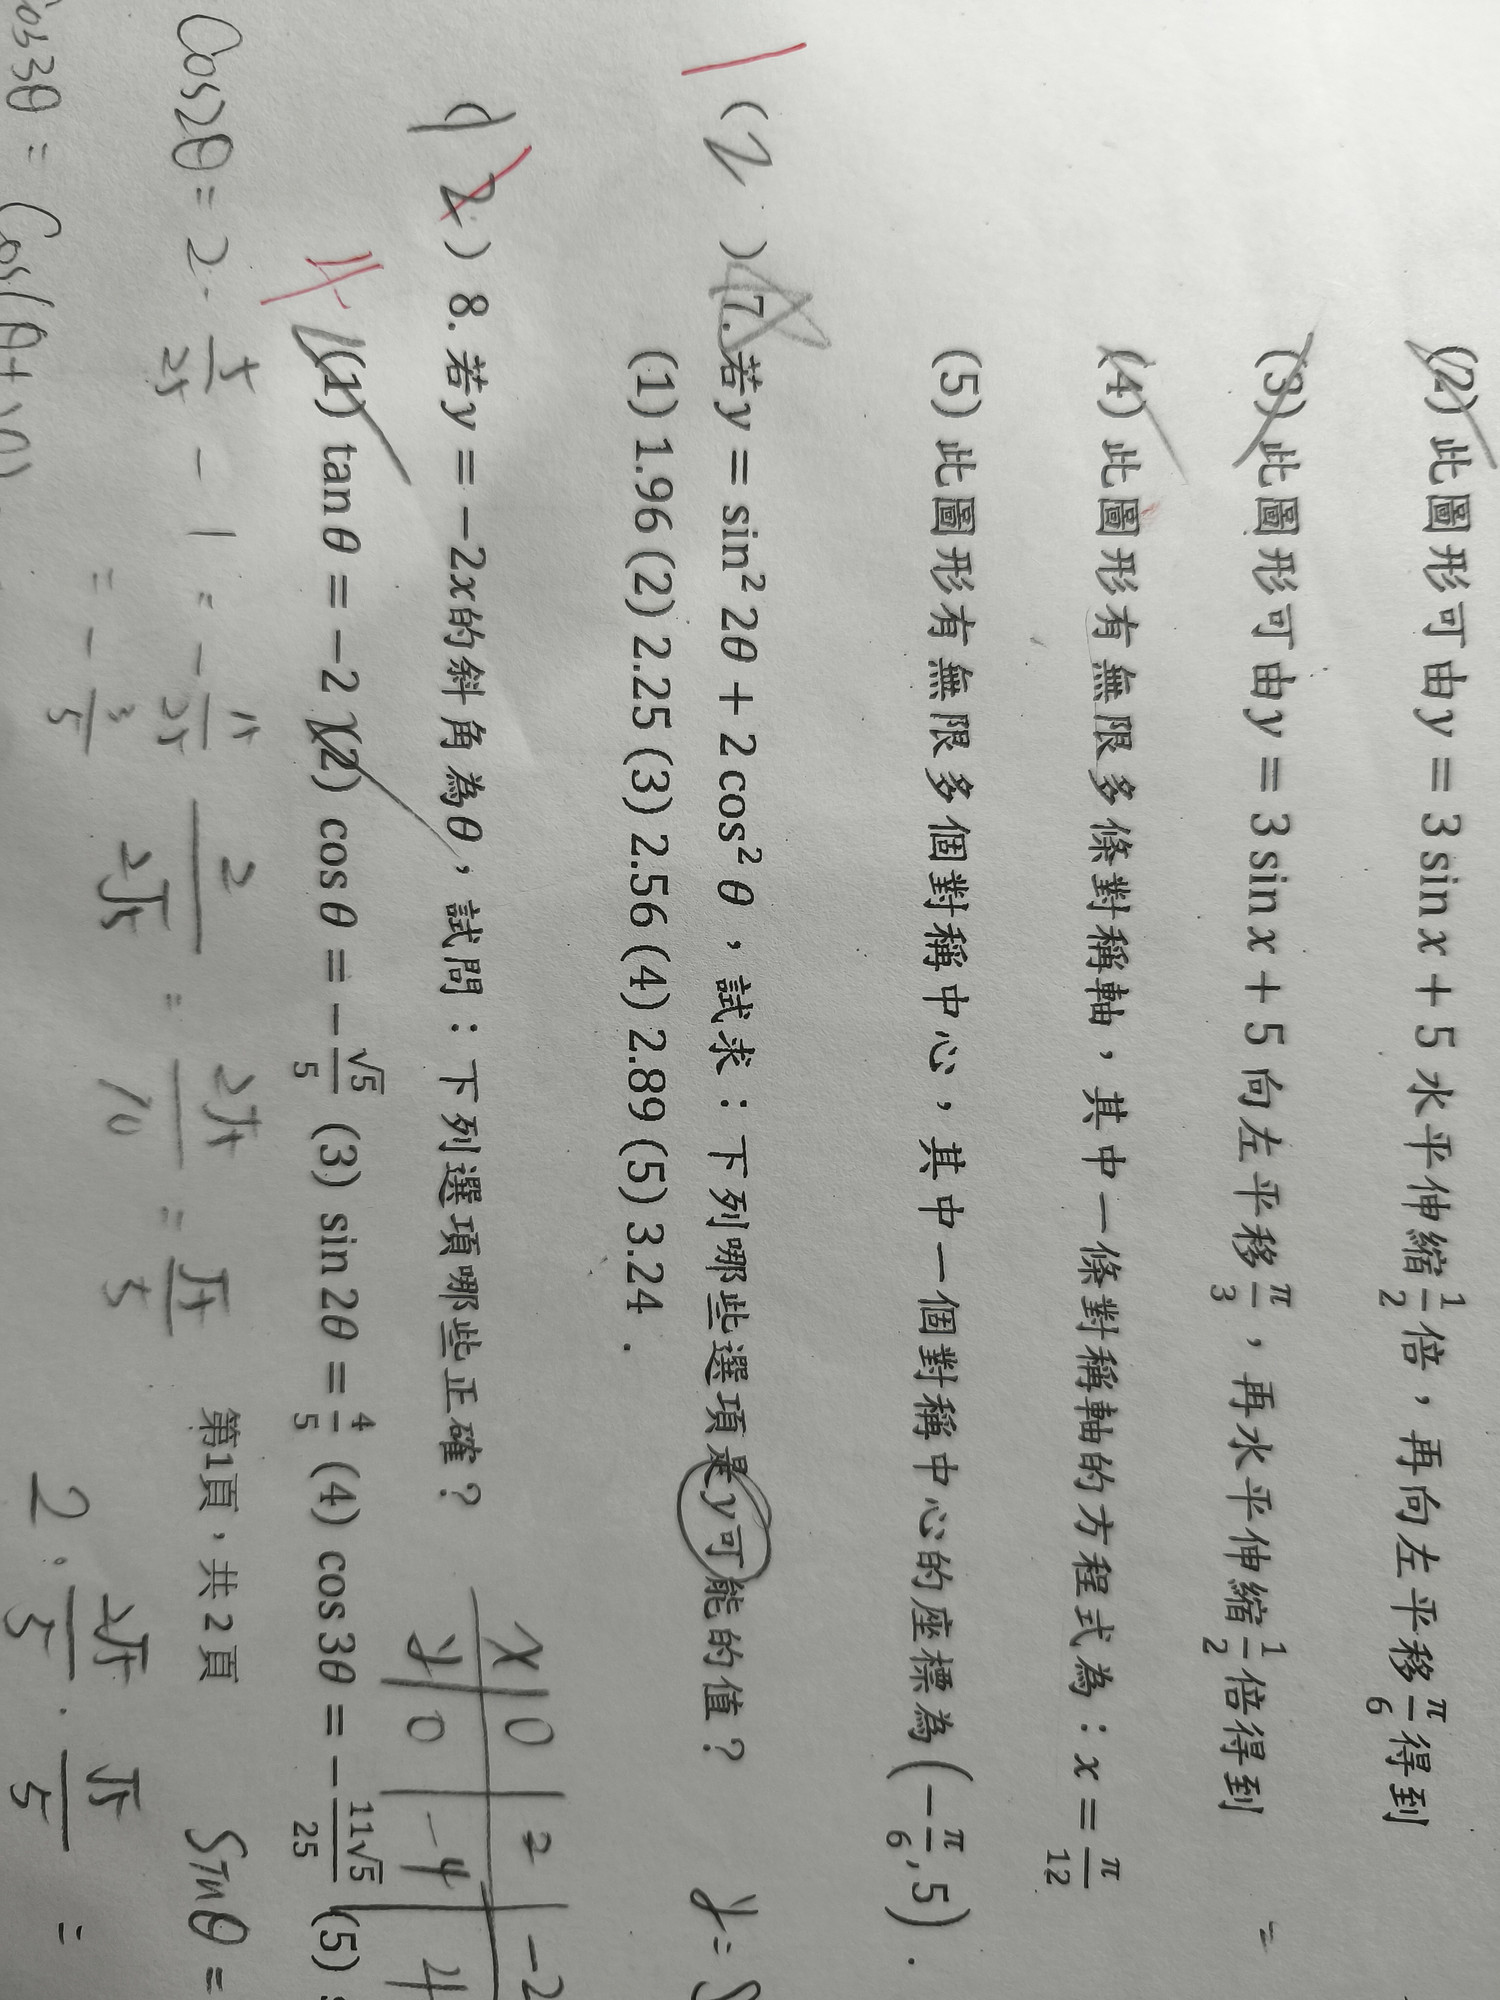 (2) 此圖形可由y = 3 sin x + 5 水平伸縮 1/2 倍，再向左平移 π/6 得到
(3) 此圖形可由y = 3 sin x + 5 向左平移 π/3，再水平伸縮 1/2 倍得到
(4) 此圖形有無限多條對稱軸，其中一條對稱軸的方程式為：x = π/12
(5) 此圖形有無限多個對稱中心，其中一個對稱中心的座標為 (−π/6, 5)．
( 2 ) 7. 若y = sin² 2θ + 2 cos² θ，試求：下列哪些選項是y可能的值？
(1) 1.96 (2) 2.25 (3) 2.56 (4) 2.89 (5) 3.24．
8. 若y = −2x的斜角為θ，試問：下列選項哪些正確？
x 0 2 -2
y 0 -4 4
(1) tan θ = −2 (2) cos θ = −√5/5 (3) sin 2θ = 4/5 (4) cos 3θ = −11√5/25 (5)
第1頁，共2頁
Cos2θ = 2 · 5/25 − 1 = − 15/25
= − 3/5
2/2√5 = 2√5/10 = √5/5
Sinθ =
2 · 2√5/5 · √5/5 =